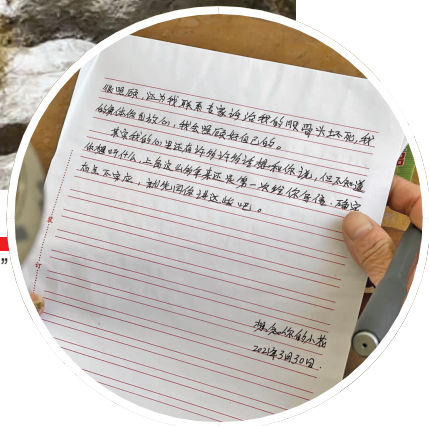 很照顾，还为我联系专家诊治我的股骨头坏死，我
的身体你别放心，我会照顾好自己的。
其实我的心里还有许多许多话想和你说，但不知道
你想听什么，上面这么多年来还是第一次给你写信，确实
有点不适应，就先同你讲这些吧。
想念你的小花
2021年3月30日.
装
订
”